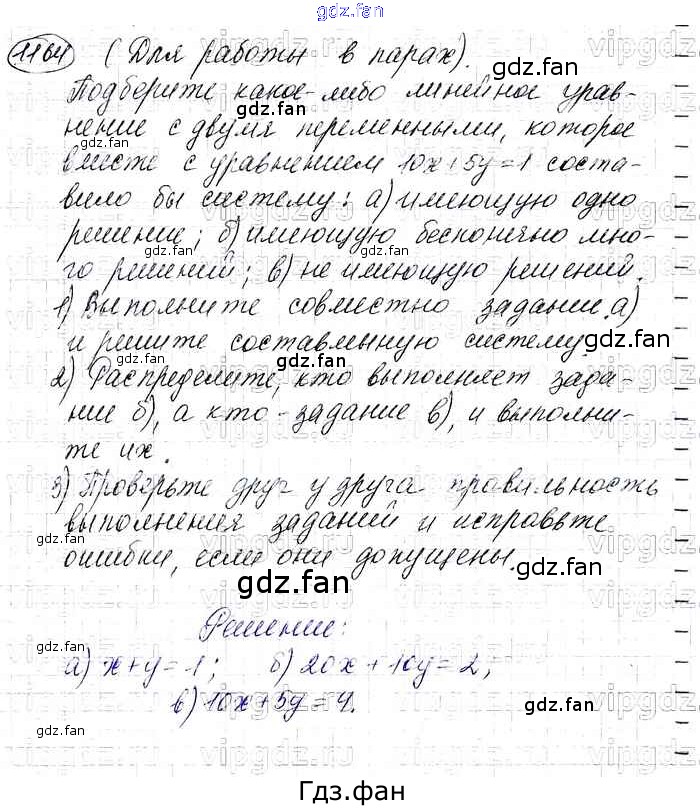 gdz.fan
1164 (Для работы в парах).
Подберите какое-либо линейное урав-
нение с двумя переменными, которое
вместе с уравнением 10x+5y=1 соста-
вило бы систему: а) имеющую одно
решение; б) имеющую бесконечно мно-
го решений; в) не имеющую решений.
1) Выполните совместно задание а)
и решите составленную систему.
2) Распределите, кто выполняет зада-
ние б), а кто - задание в), и выполни-
те их.
3) Проверьте друг у друга правильность
выполнения заданий и исправьте
ошибки, если они допущены.
gdz.fan
Решение:
а) x+y=1; б) 20x+10y=2;
в) 10x+5y=4.
Гдз.фан